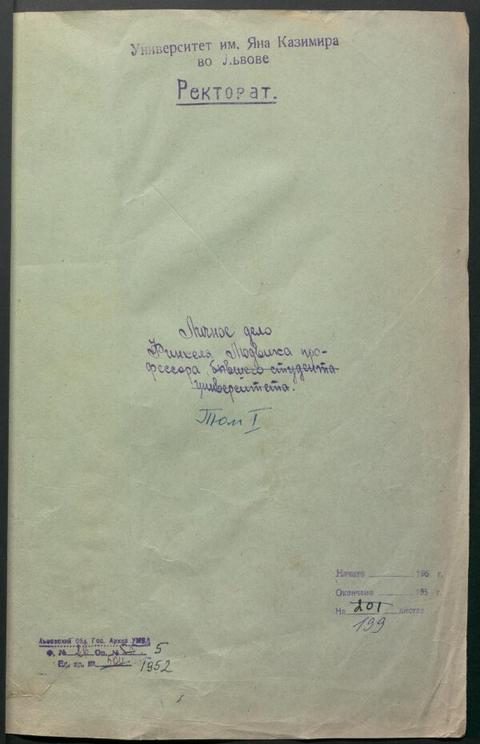 Университет им. Яна Казимира
во Львове
Ректорат.
Личное дело
Финкеля Людвика про-
фессора, бывшего студента
университета.
Том I
Начато 195 г.
Окончено 195 г.
На 201 листах
199
Львовский Обл. Гос. Архив УМВД
Ф. № 26 Оп. № 5
Ед. хр. № 1952